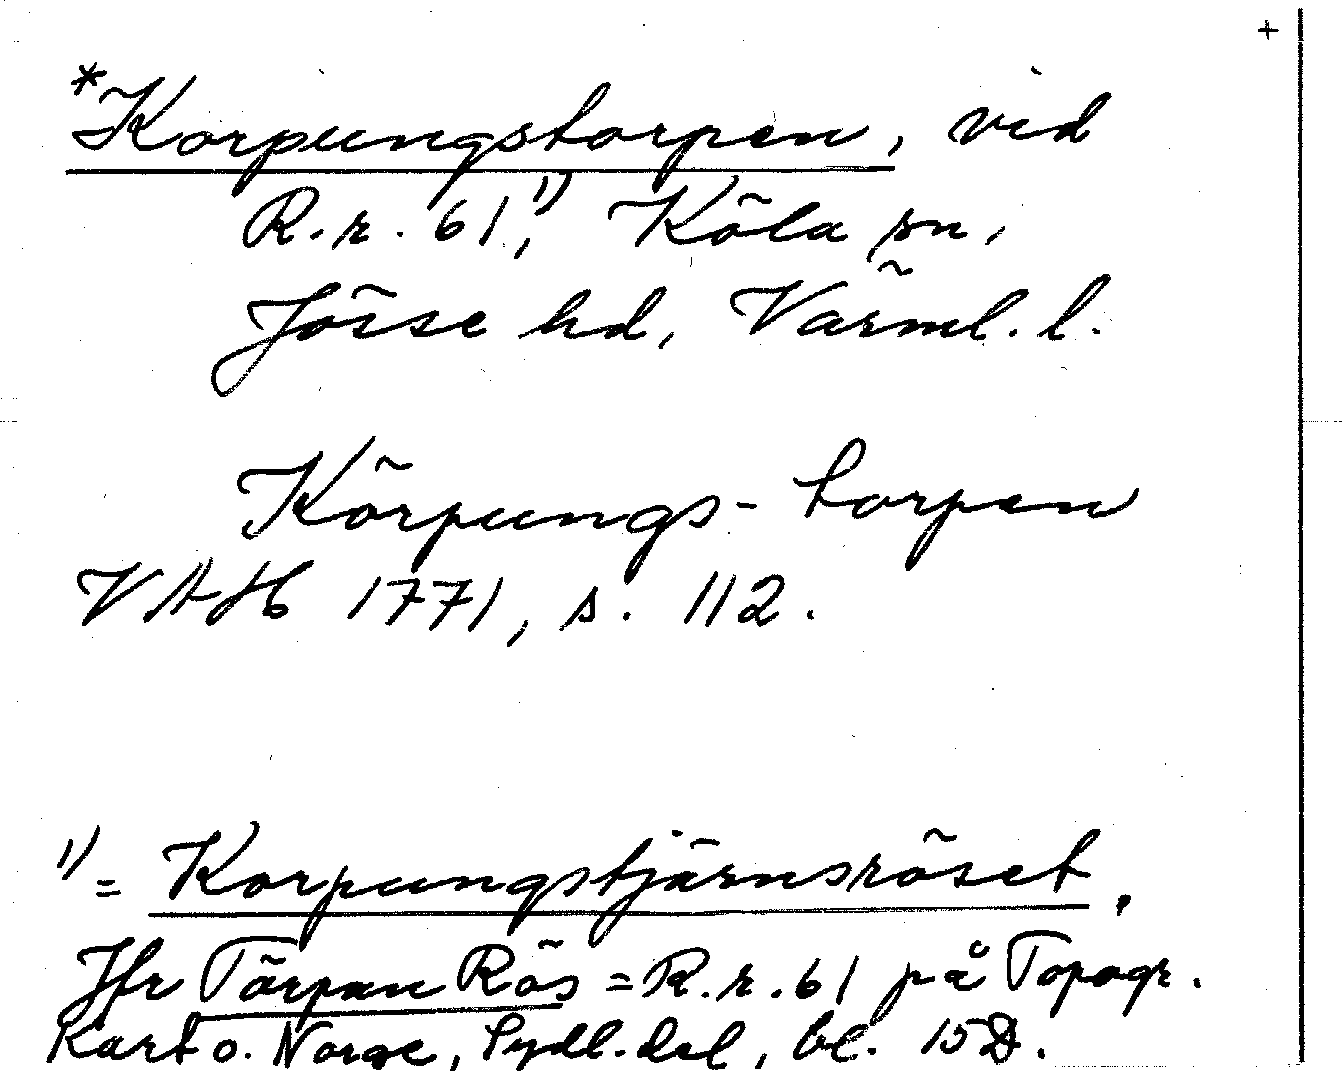 +
*Korpungstorpen, vid
R.r. 61,¹⁾ Köla sn,
Jösse hd, Värml. l.
Körpungs-torpen
VAH 1771, s. 112.
¹⁾ = Korpungstjärnsröset.
Jfr Törpan Rös = R.r. 61 på Topogr.
Kart o. Norge, Sydl. del, bl. 15 D.